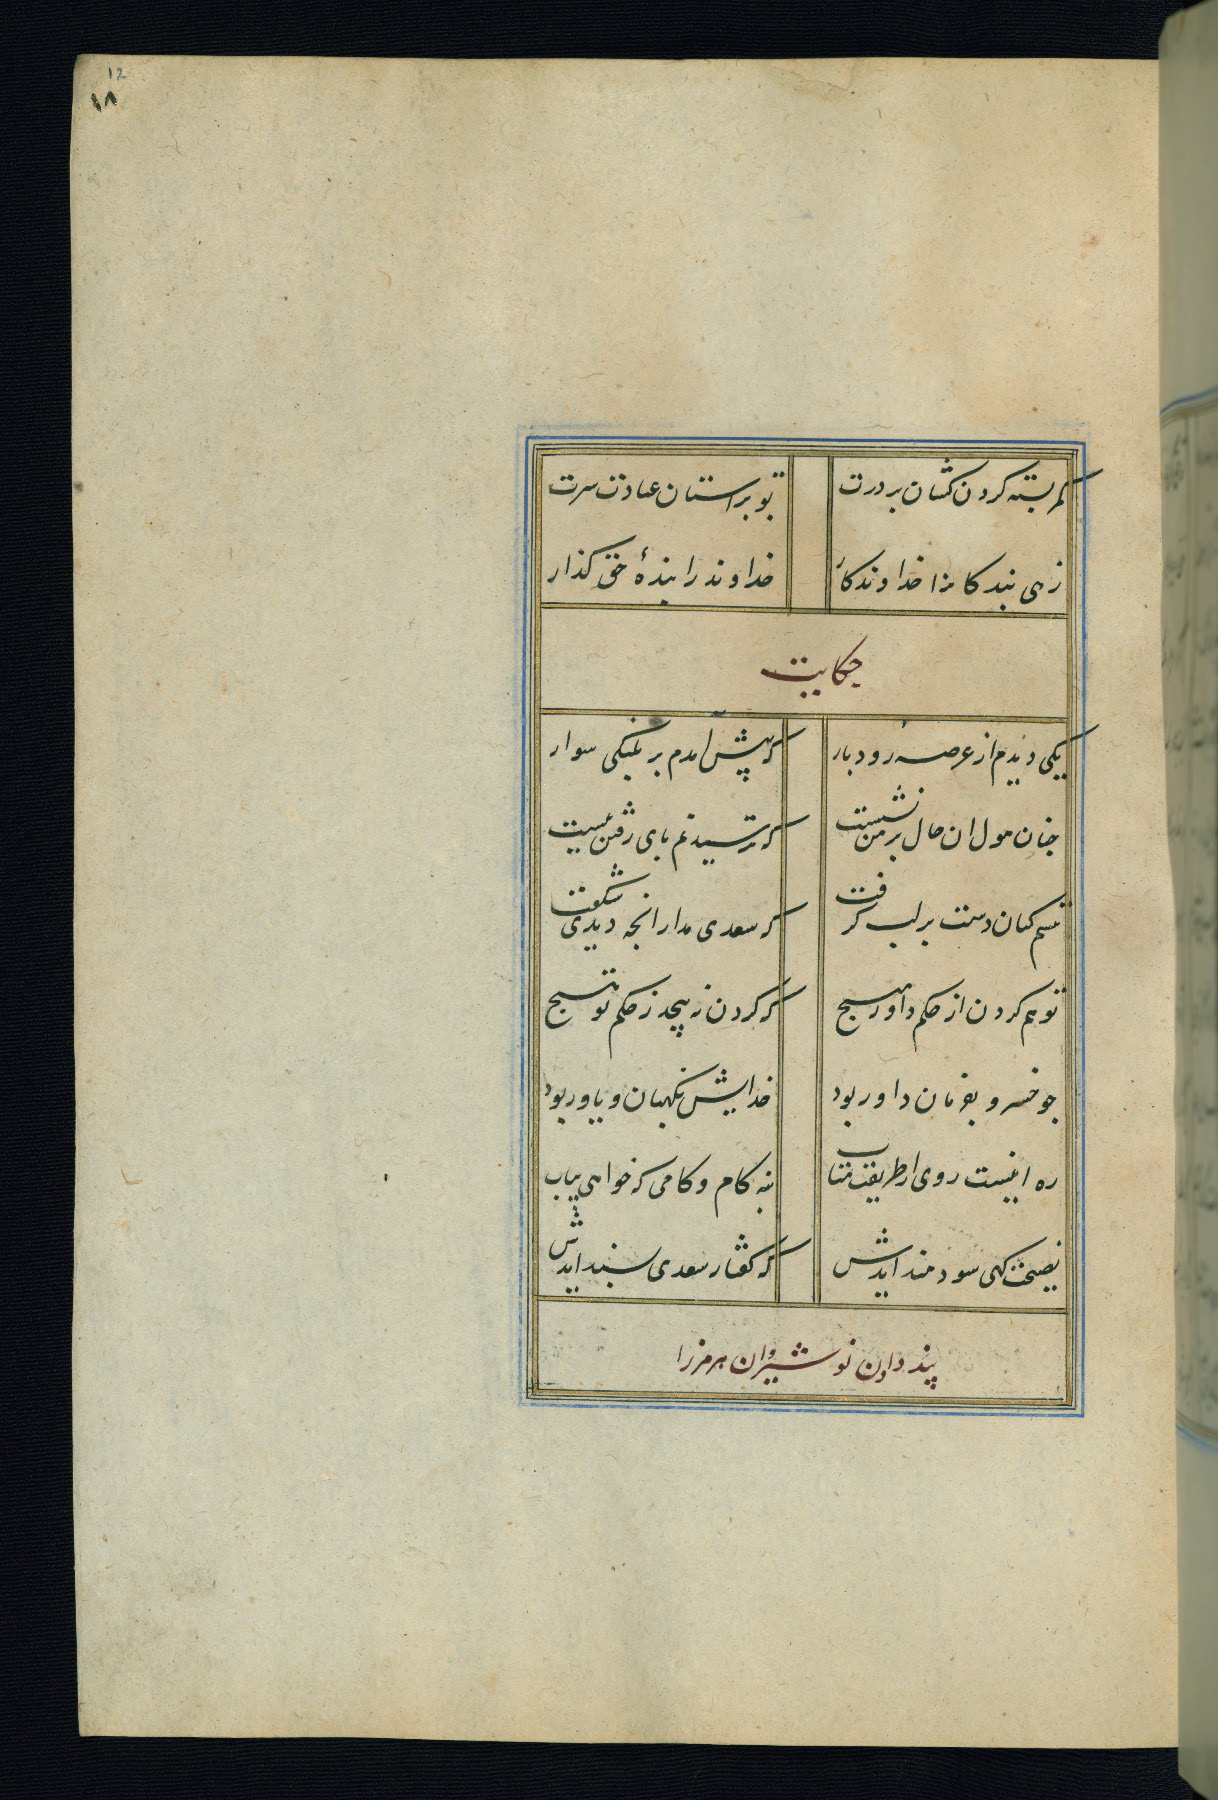 12
۱۸
کمر بسته کردن کشان بر درت تو بر استان عبادت سرت
زهی بندکانرا خداوندکار خداوند را بندهٔ حق کذار
حکایت
یکی دیدم از عرصهٔ رودبار که پیش آمدم بر پلنکی سوار
چنان هول ان حال بر من نشست که ترسیدنم پای رفتن ببست
تبسم کنان دست بر لب کرفت که سعدی مدار انچه دیدی شکفت
تو هم کردن از حکم داور مپیچ که کردن نه پیچد ز حکم تو هیچ
جو خسرو بفرمان داور بود خدایش نکهبان و یاور بود
ره اینست روی از طریقت متاب بنه کام و کامی که خواهی بیاب
نصیحت کهی سودمند ایدش که کفتار سعدی پسند ایدش
پند دادن نوشیروان هرمز را